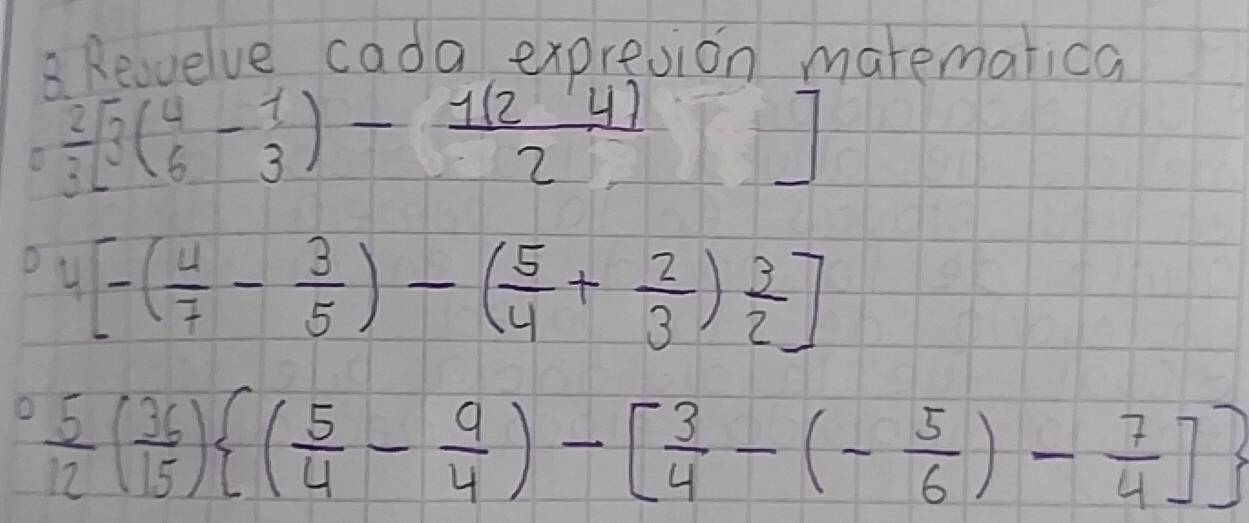 3. Resuelve cada expresión matematica
° 2/3 [5(4/6 - 1/3) - 1(2 4)/2 ]
° 4[-(4/7 - 3/5) - (5/4 + 2/3) 3/2]
° 5/12 (36/15) {(5/4 - 9/4) - [3/4 - (-5/6) - 7/4]}